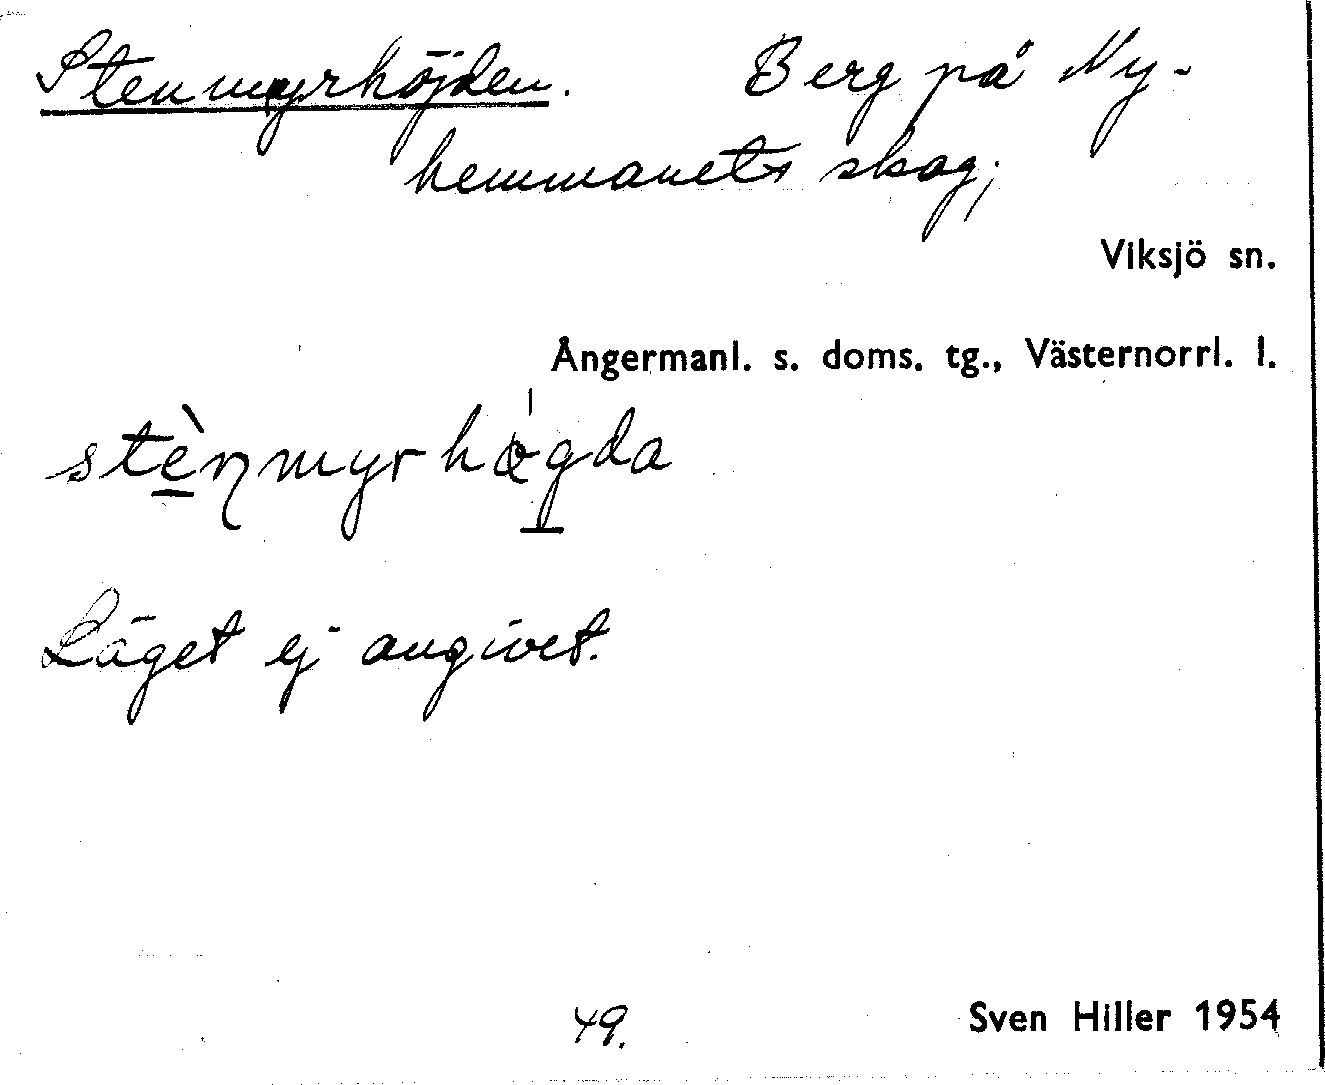 Stenmyrhöjden. Berg på Ny-
hemmanets skog;
Viksjö sn.
Ångermanl. s. doms. tg., Västernorrl. l.
stè̠nmyrhǿgda
Läget ej angivet.
49.
Sven Hiller 1954